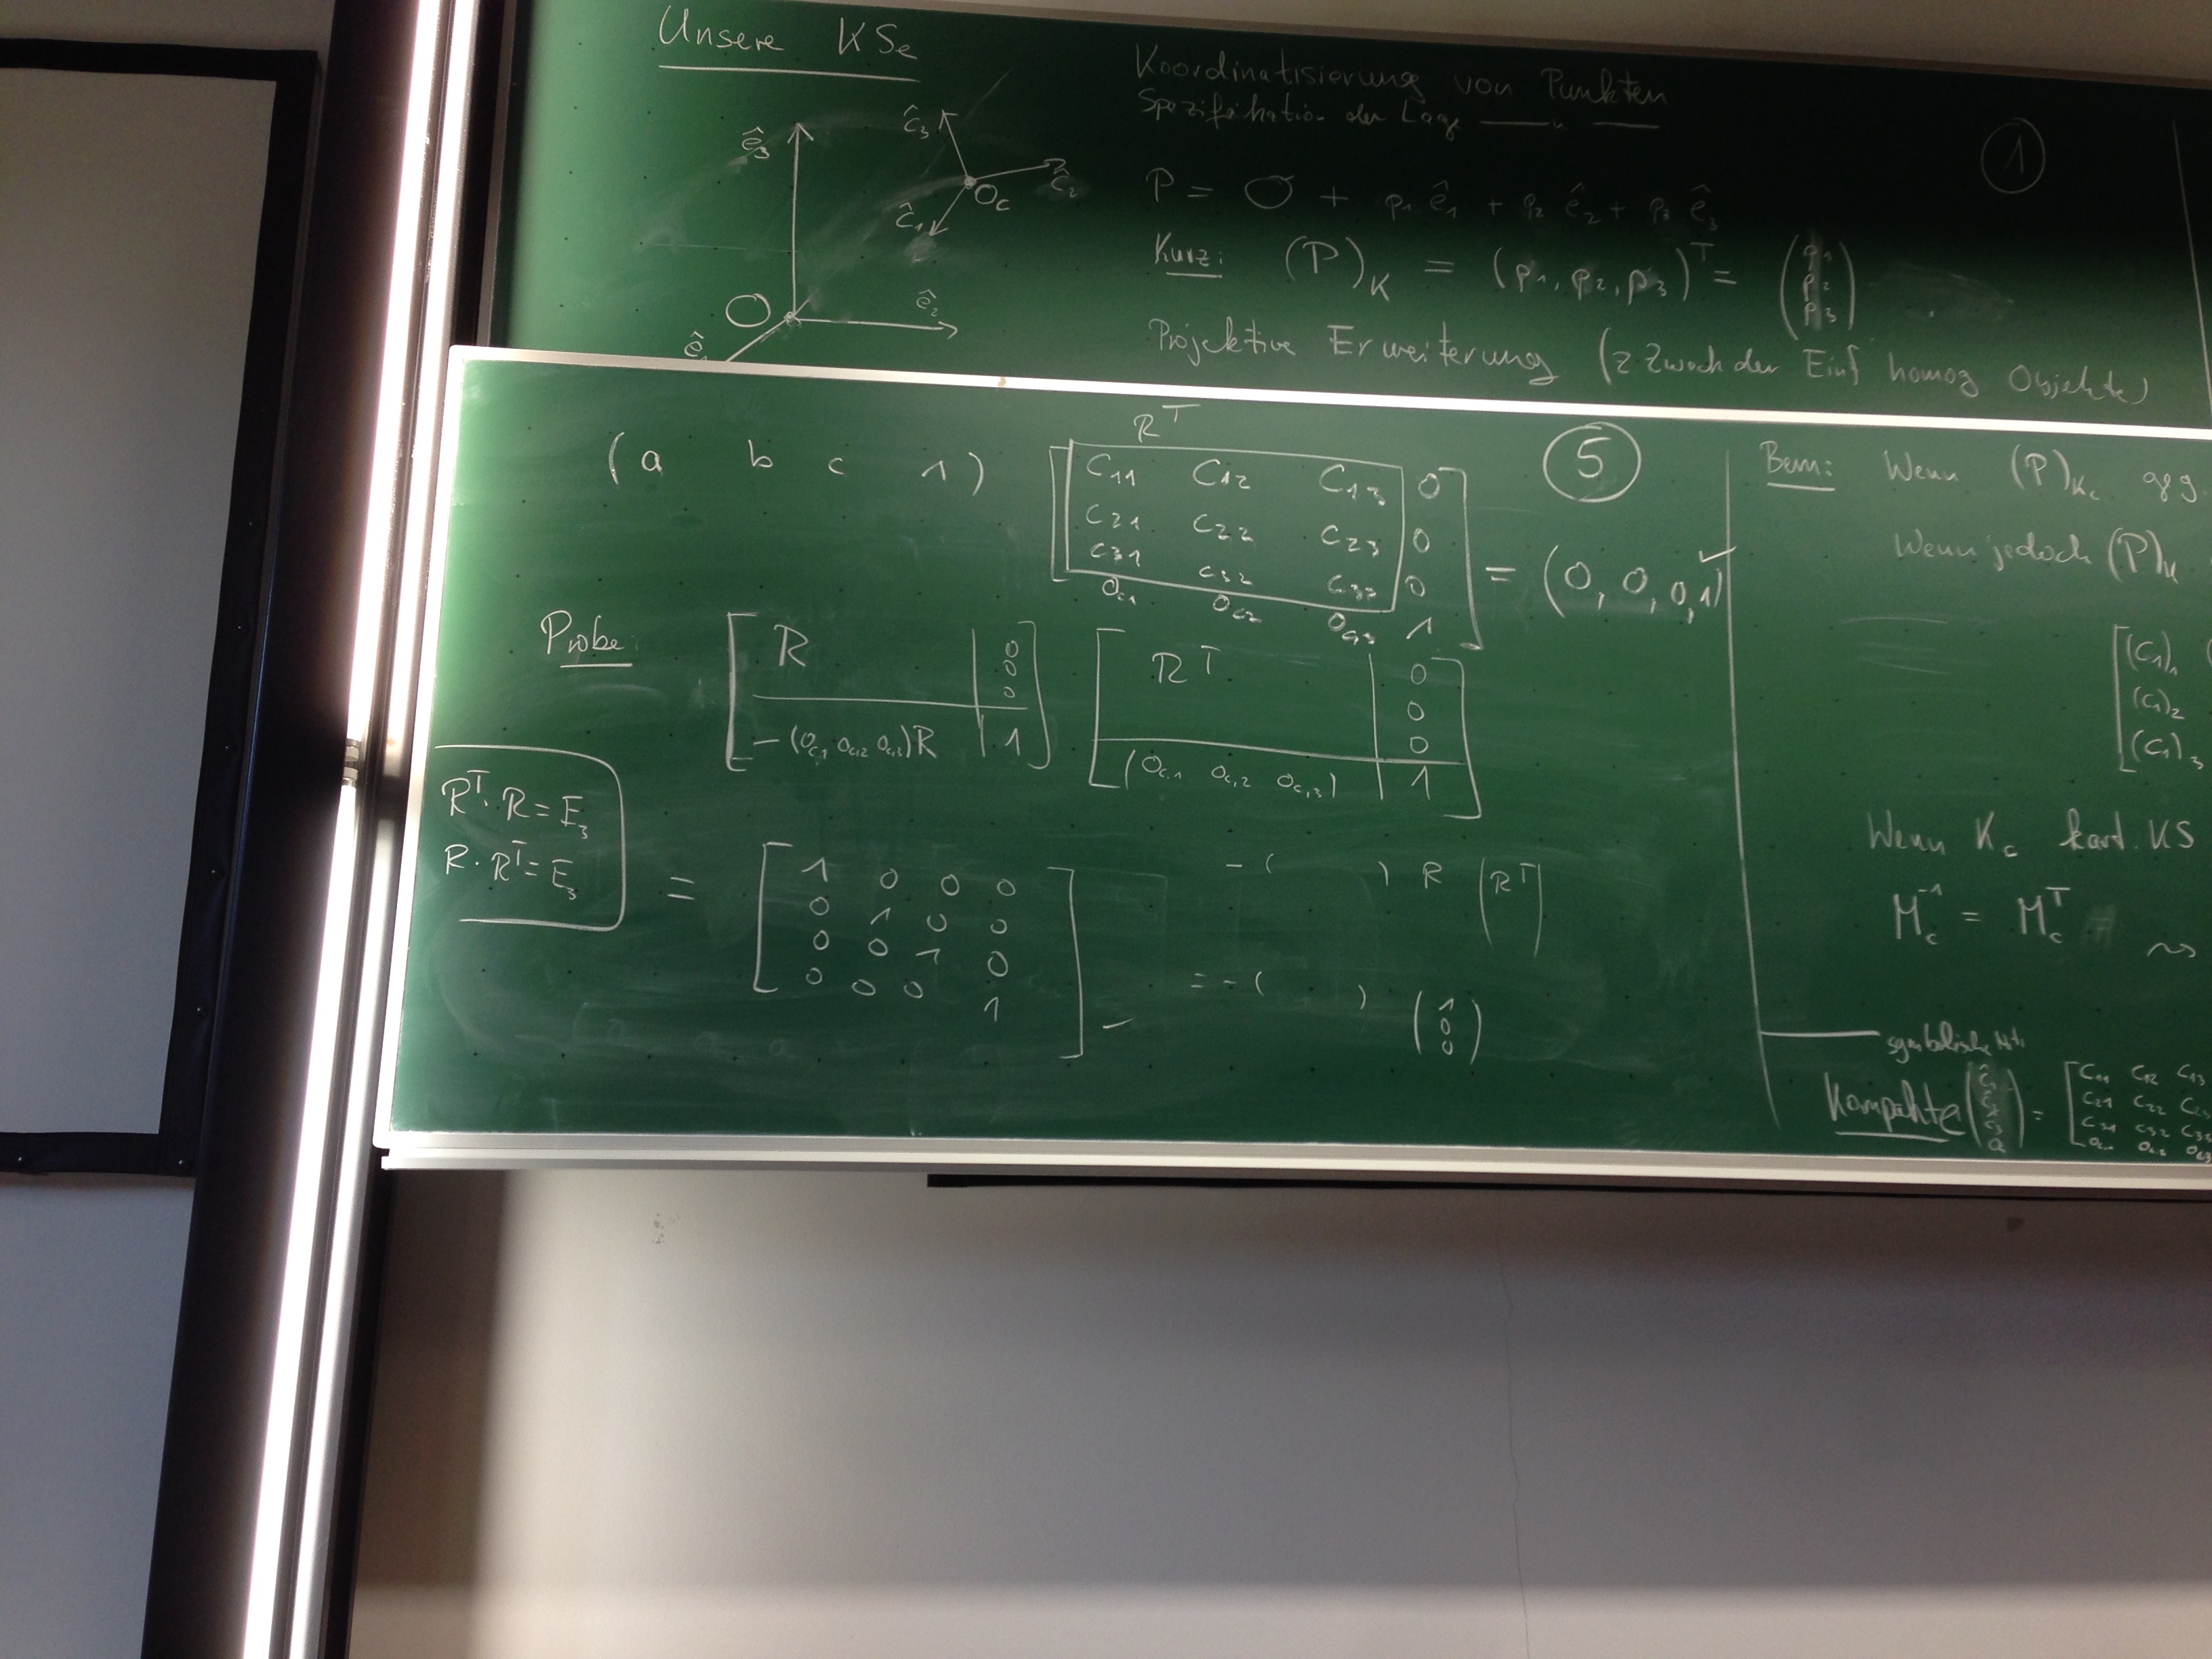 Unsere KSe
ê₃
ĉ₃
ĉ₂
O_c
ĉ₁
O
ê₂
ê₁
Koordinatisierung von Punkten
Spezifikation der Lage
①
P = O + p₁ ê₁ + p₂ ê₂ + p₃ ê₃
Kurz: (P)_K = (p₁, p₂, p₃)^T = (p₁ p₂ p₃)
Projektive Erweiterung (z Zweck der Einf homog Objekte)
R^T
⑤
(a b c 1)
C₁₁ C₁₂ C₁₃ 0
C₂₁ C₂₂ C₂₃ 0
C₃₁ C₃₂ C₃₃ 0
O_c1 O_c2 O_c3 1
= (0, 0, 0, 1) ✓
Probe:
R 0 0 0
-(O_c,1 O_c,2 O_c,3)R 1
R^T 0 0 0
(O_c,1 O_c,2 O_c,3) 1
R^T · R = E₃
R · R^T = E₃
=
1 0 0 0
0 1 0 0
0 0 1 0
0 0 0 1
-( ) R (R^T)
= -( ) (1 0 0)
Bem: Wenn (P)_Kc geg
Wenn jedoch (P)_K
(C₁)₁
(C₁)₂
(C₁)₃
Wenn K_c kart. KS
M_c^-1 = M_c^T
symbolische
Kompakte
=
C₁₁ C₁₂ C₁₃
C₂₁ C₂₂ C₂₃
C₃₁ C₃₂ C₃₃
O_c1 O_c2 O_c3